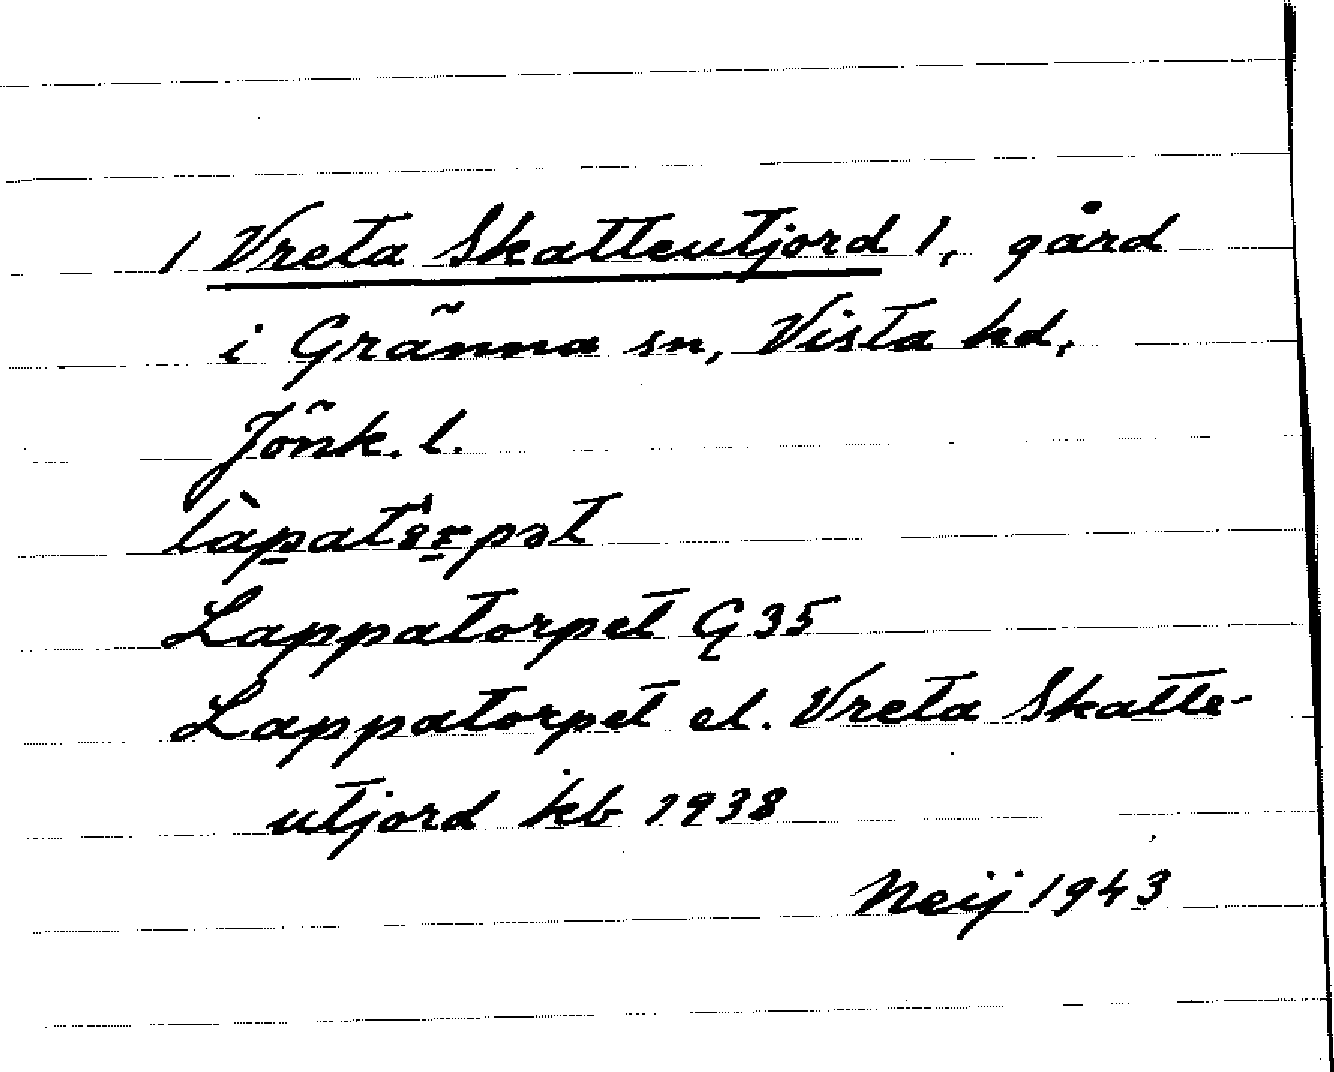 / Vreta Skatteutjord /, gård
i Gränna sn, Vista hd,
Jönk. l.
Lappatorpet G 35
Lappatorpet el. Vreta Skatte-
utjord kb 1938
Neij 1943